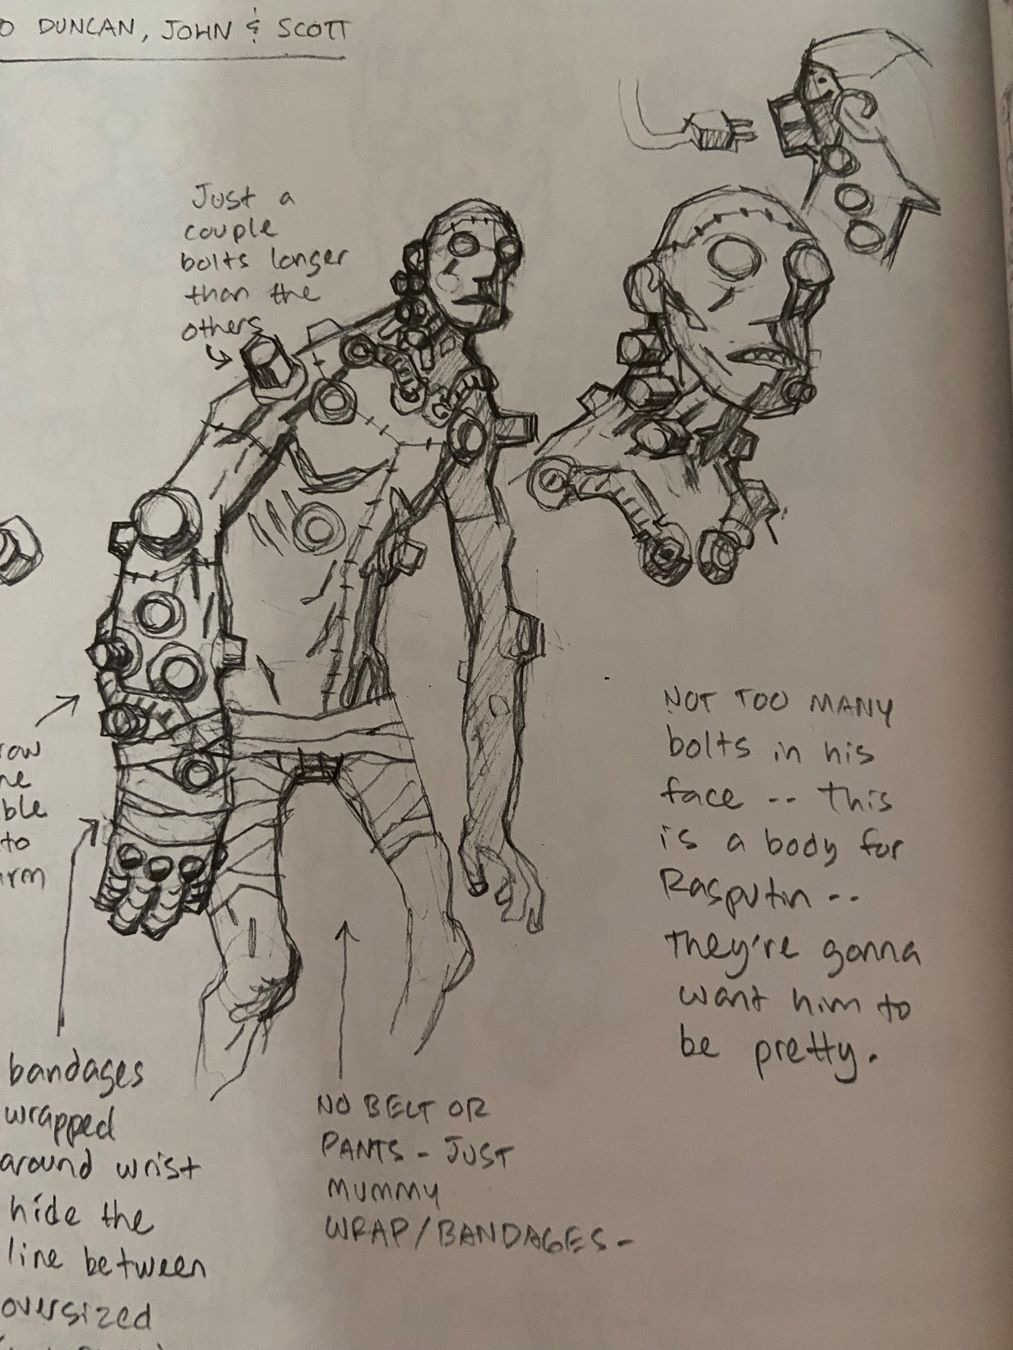 O DUNCAN, JOHN & SCOTT
Just a
couple
bolts longer
than the
others
NOT TOO MANY
bolts in his
face -- This
is a body for
Rasputin --
they're gonna
want him to
be pretty.
row
ne
ble
to
arm
bandages
wrapped
around wrist
hide the
line between
oversized
NO BELT OR
PANTS - JUST
MUMMY
WRAP/BANDAGES -